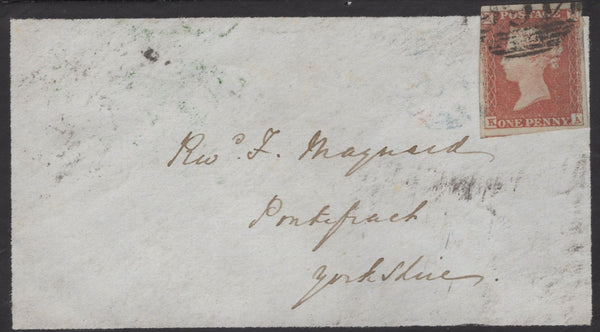 POSTAGE
ONE PENNY
K A
Revd. F. Maynard
Pontefract
Yorkshire.